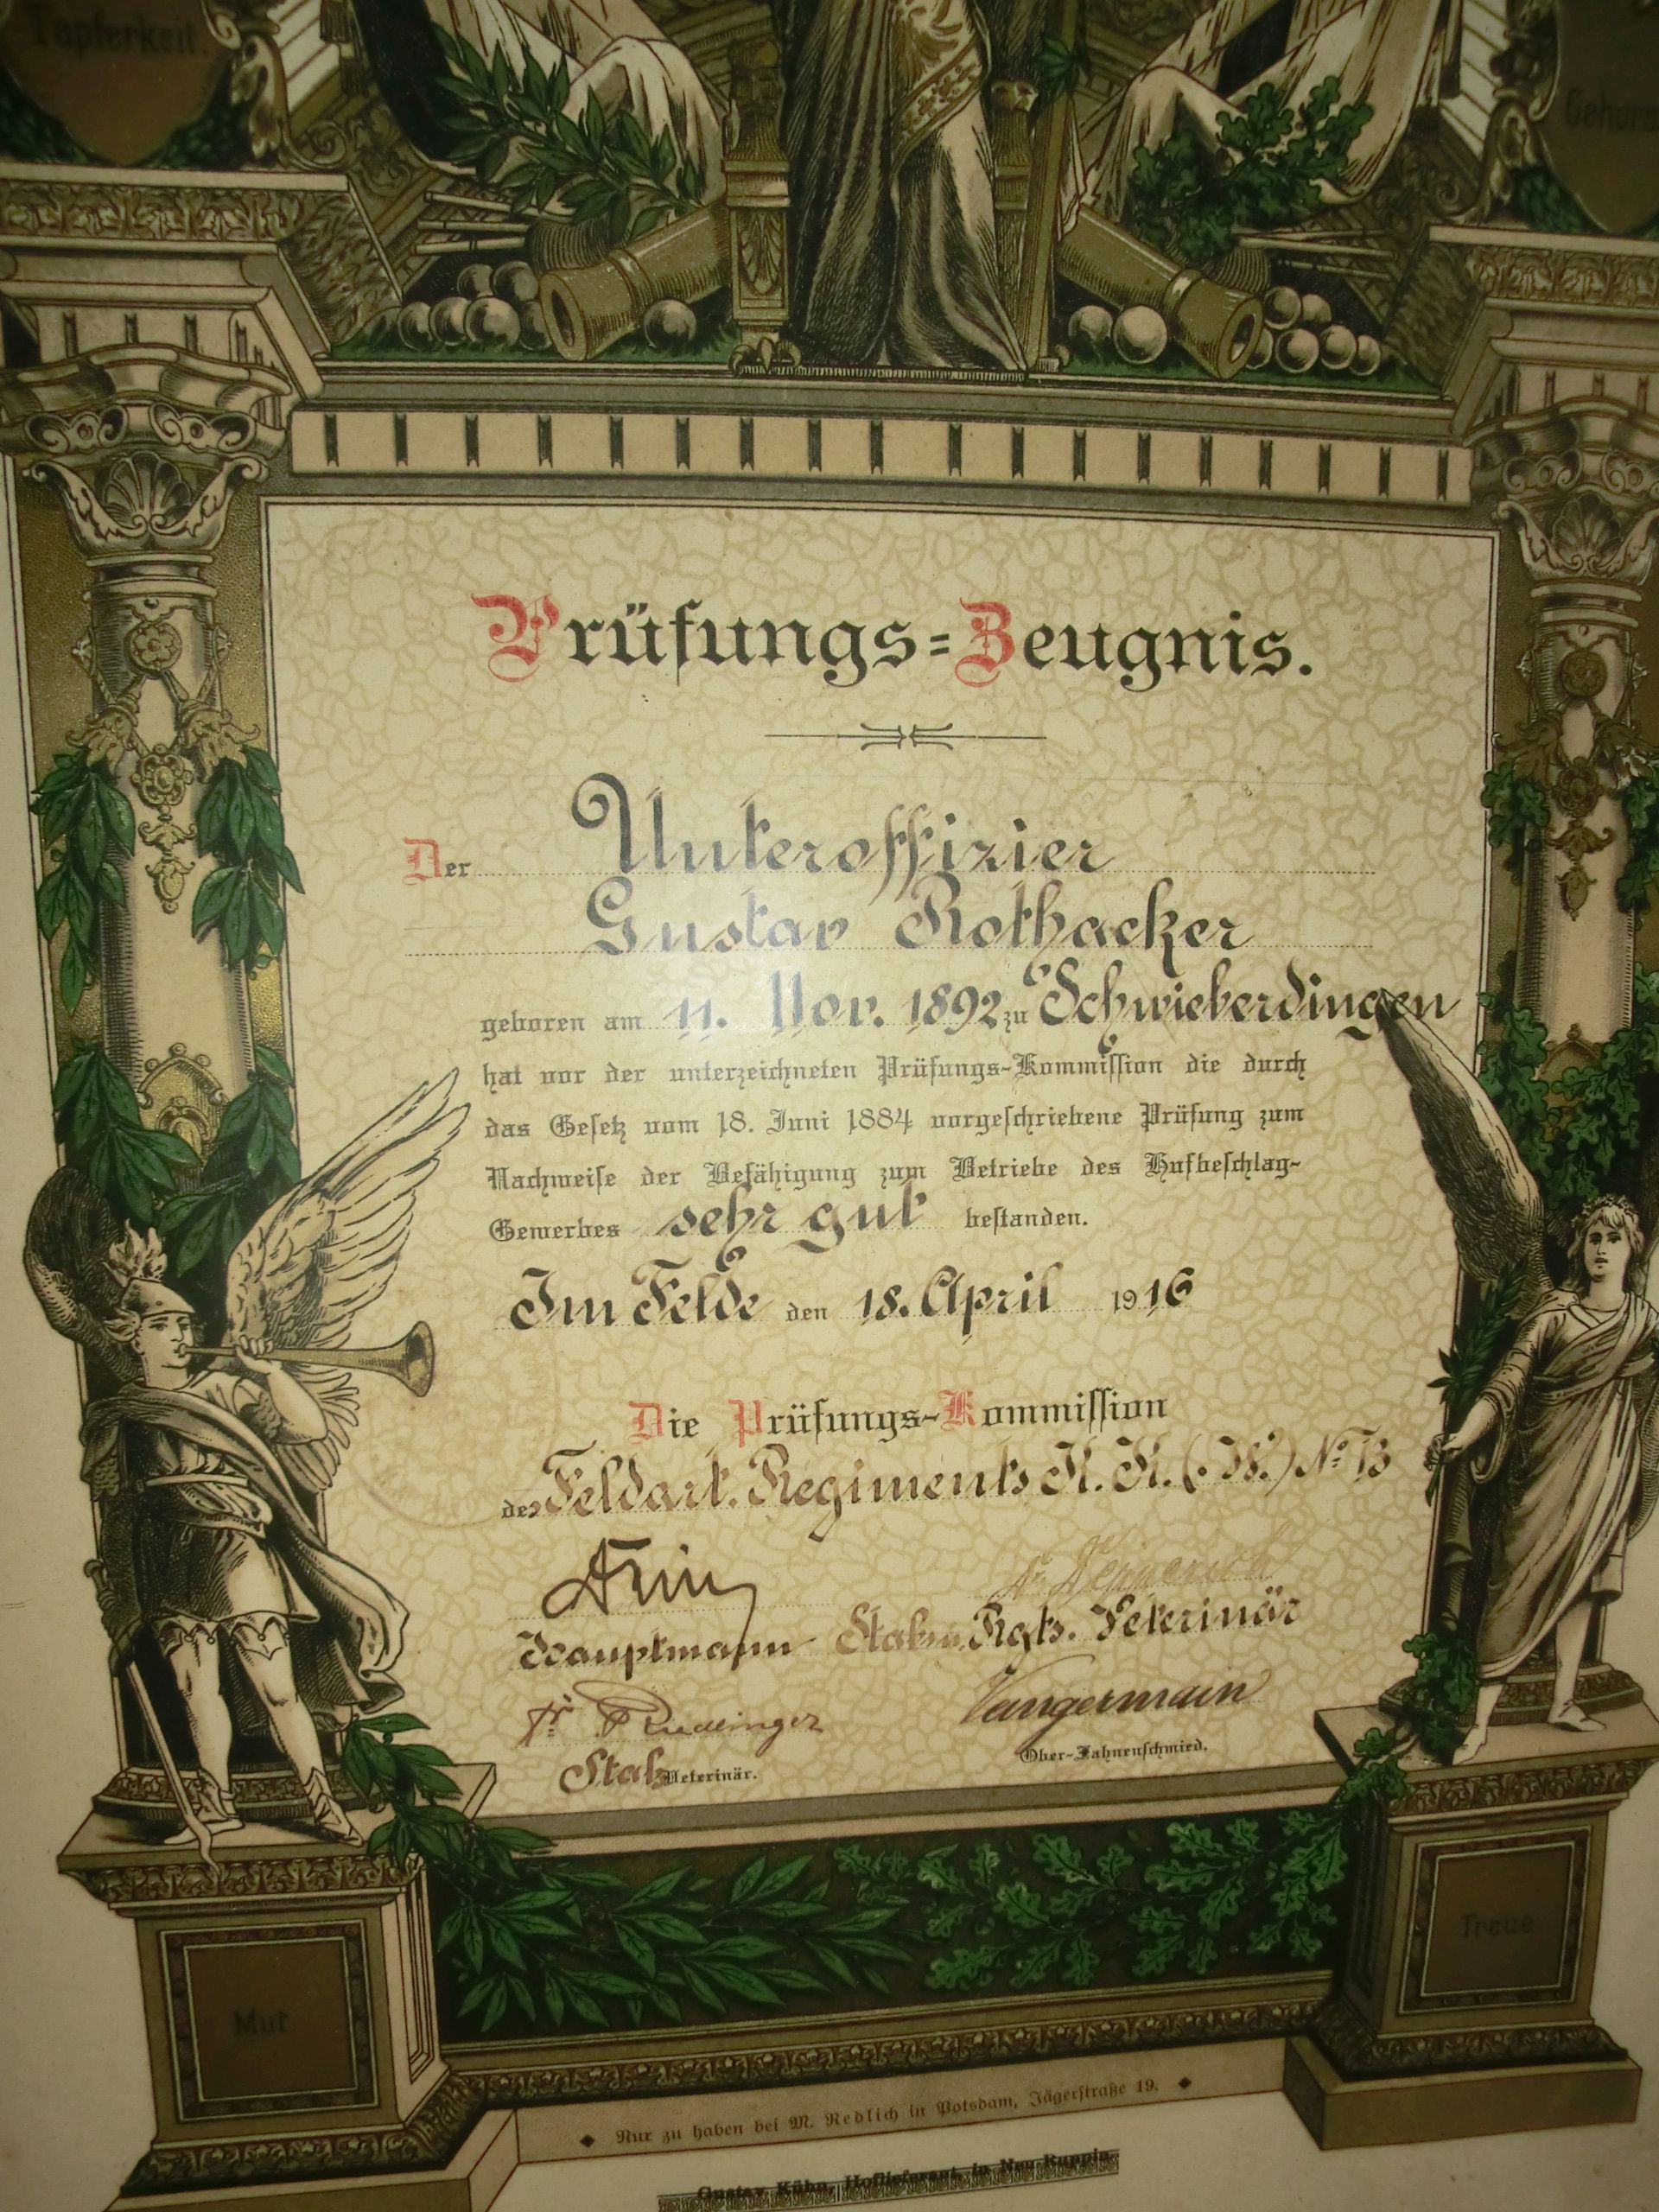 Tapferkeit.
Gehors
Prüfungs=Zeugnis.
Der Unteroffizier
Gustav Rothacker
geboren am 11. Nov. 1892 zu Schwieberdingen
hat vor der unterzeichneten Prüfungs-Kommission die durch
das Gesetz vom 18. Juni 1884 vorgeschriebene Prüfung zum
Nachweise der Befähigung zum Betriebe des Hufbeschlag-
Gewerbes sehr gut bestanden.
Im Felde den 18. April 1916
Die Prüfungs-Kommission
des Feldart. Regiments K. K. (W.) No 13
Hauptmann Stabs u. Rgts. Veterinär
Dr.
Vangermain
Stabsveterinär.
Ober-Fahnenschmied.
Mut.
Treue
Nur zu haben bei M. Redlich in Potsdam, Jägerstraße 19.
Gustav Kühn, Hoflieferant, in Neu Ruppin.